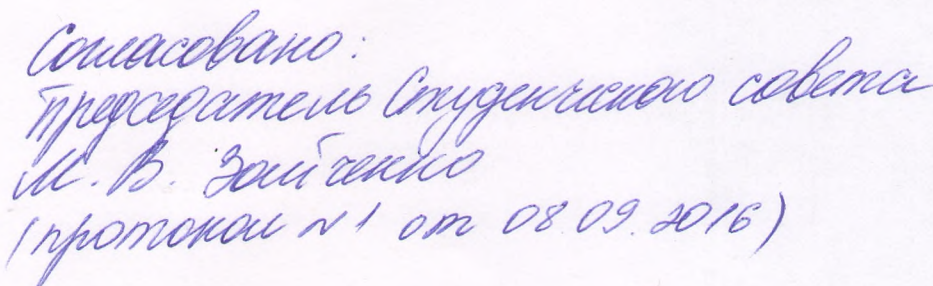 Согласовано:
Председатель Студенческого совета
М. В. Зайченко
(протокол №1 от 08.09.2016)